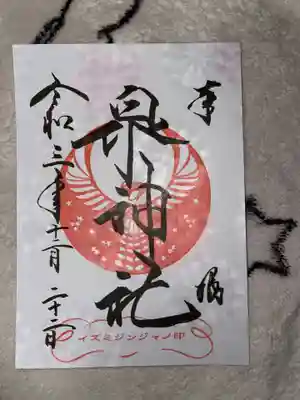 奉拝
泉神社
令和三年十一月二十二日
イズミジンジャノ印